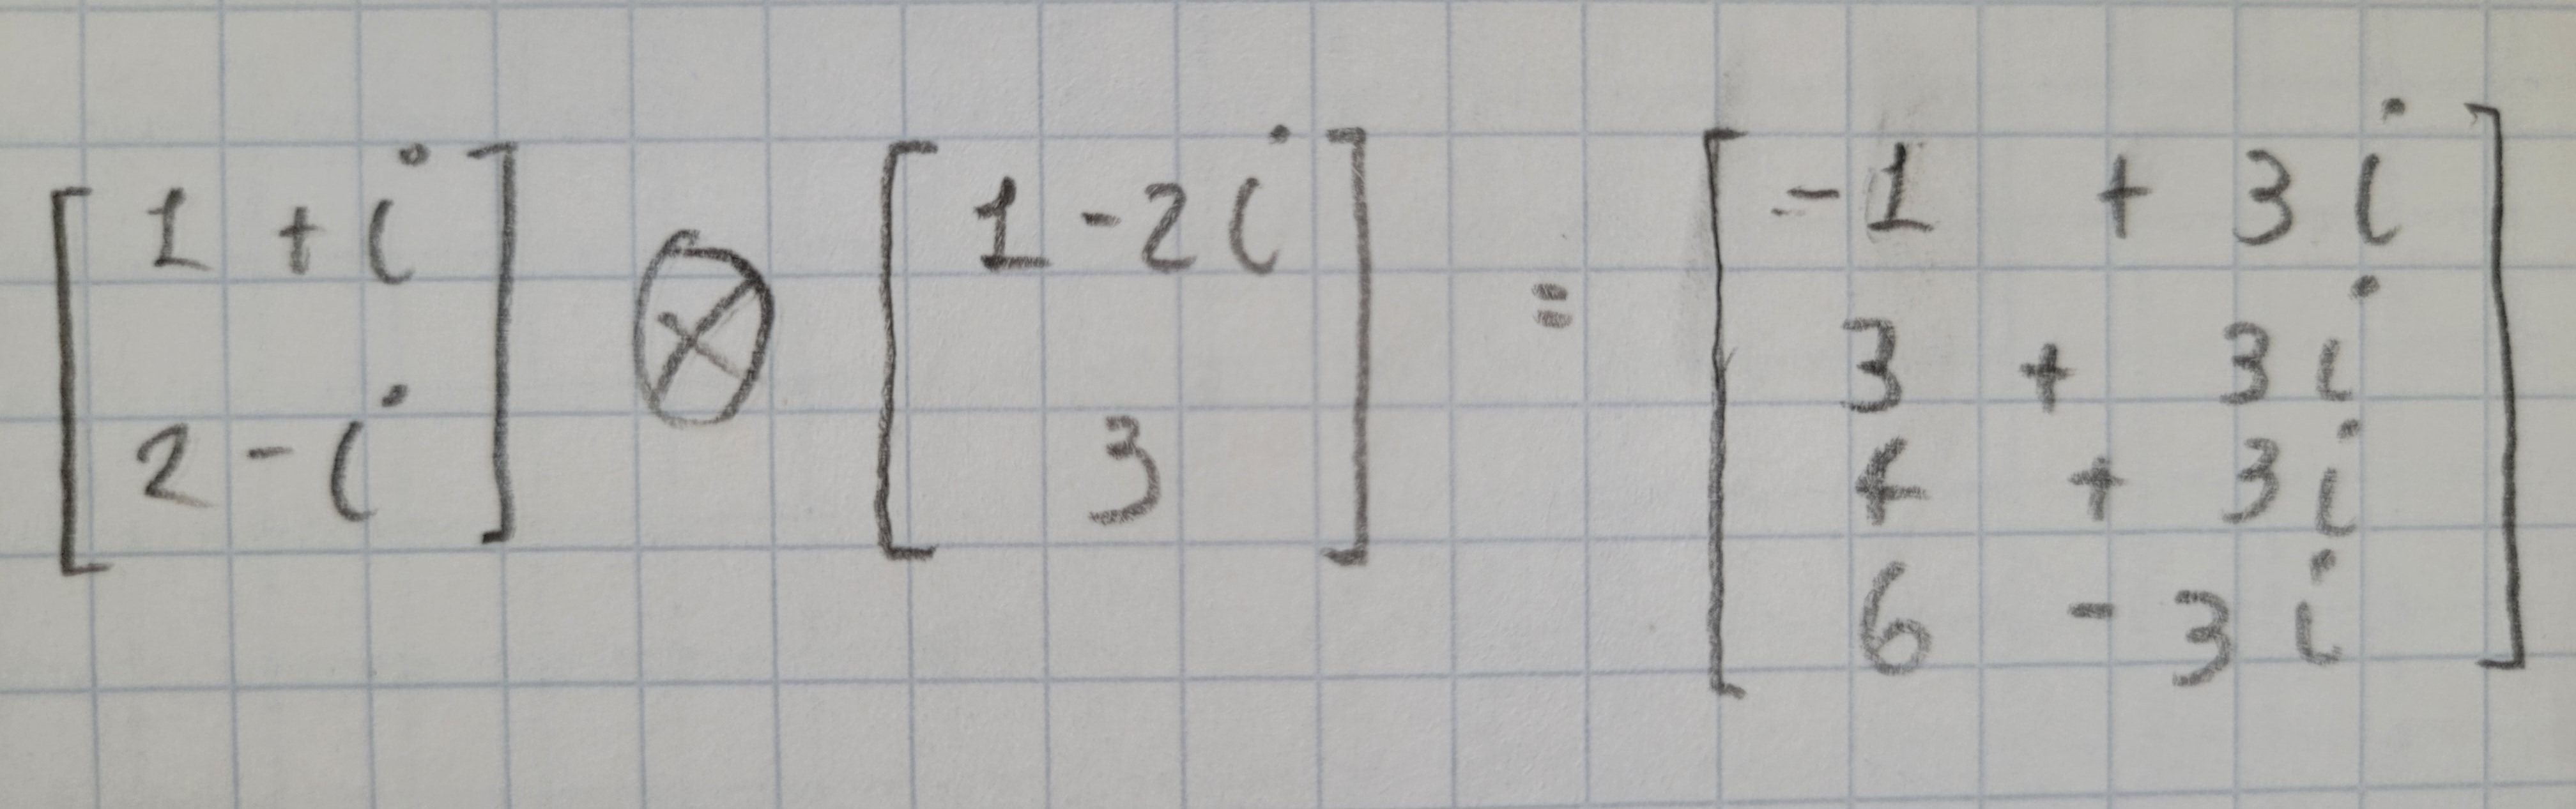 [1 + i
2 - i] ⊗ [1 - 2i
3] = [-1 + 3i
3 + 3i
4 + 3i
6 - 3i]